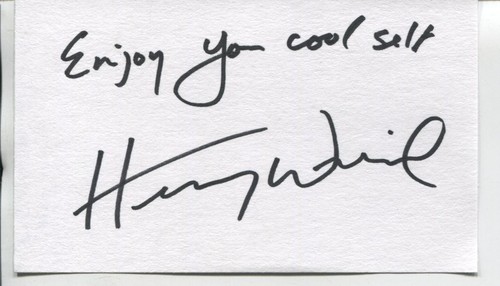 Enjoy you cool self
Henry